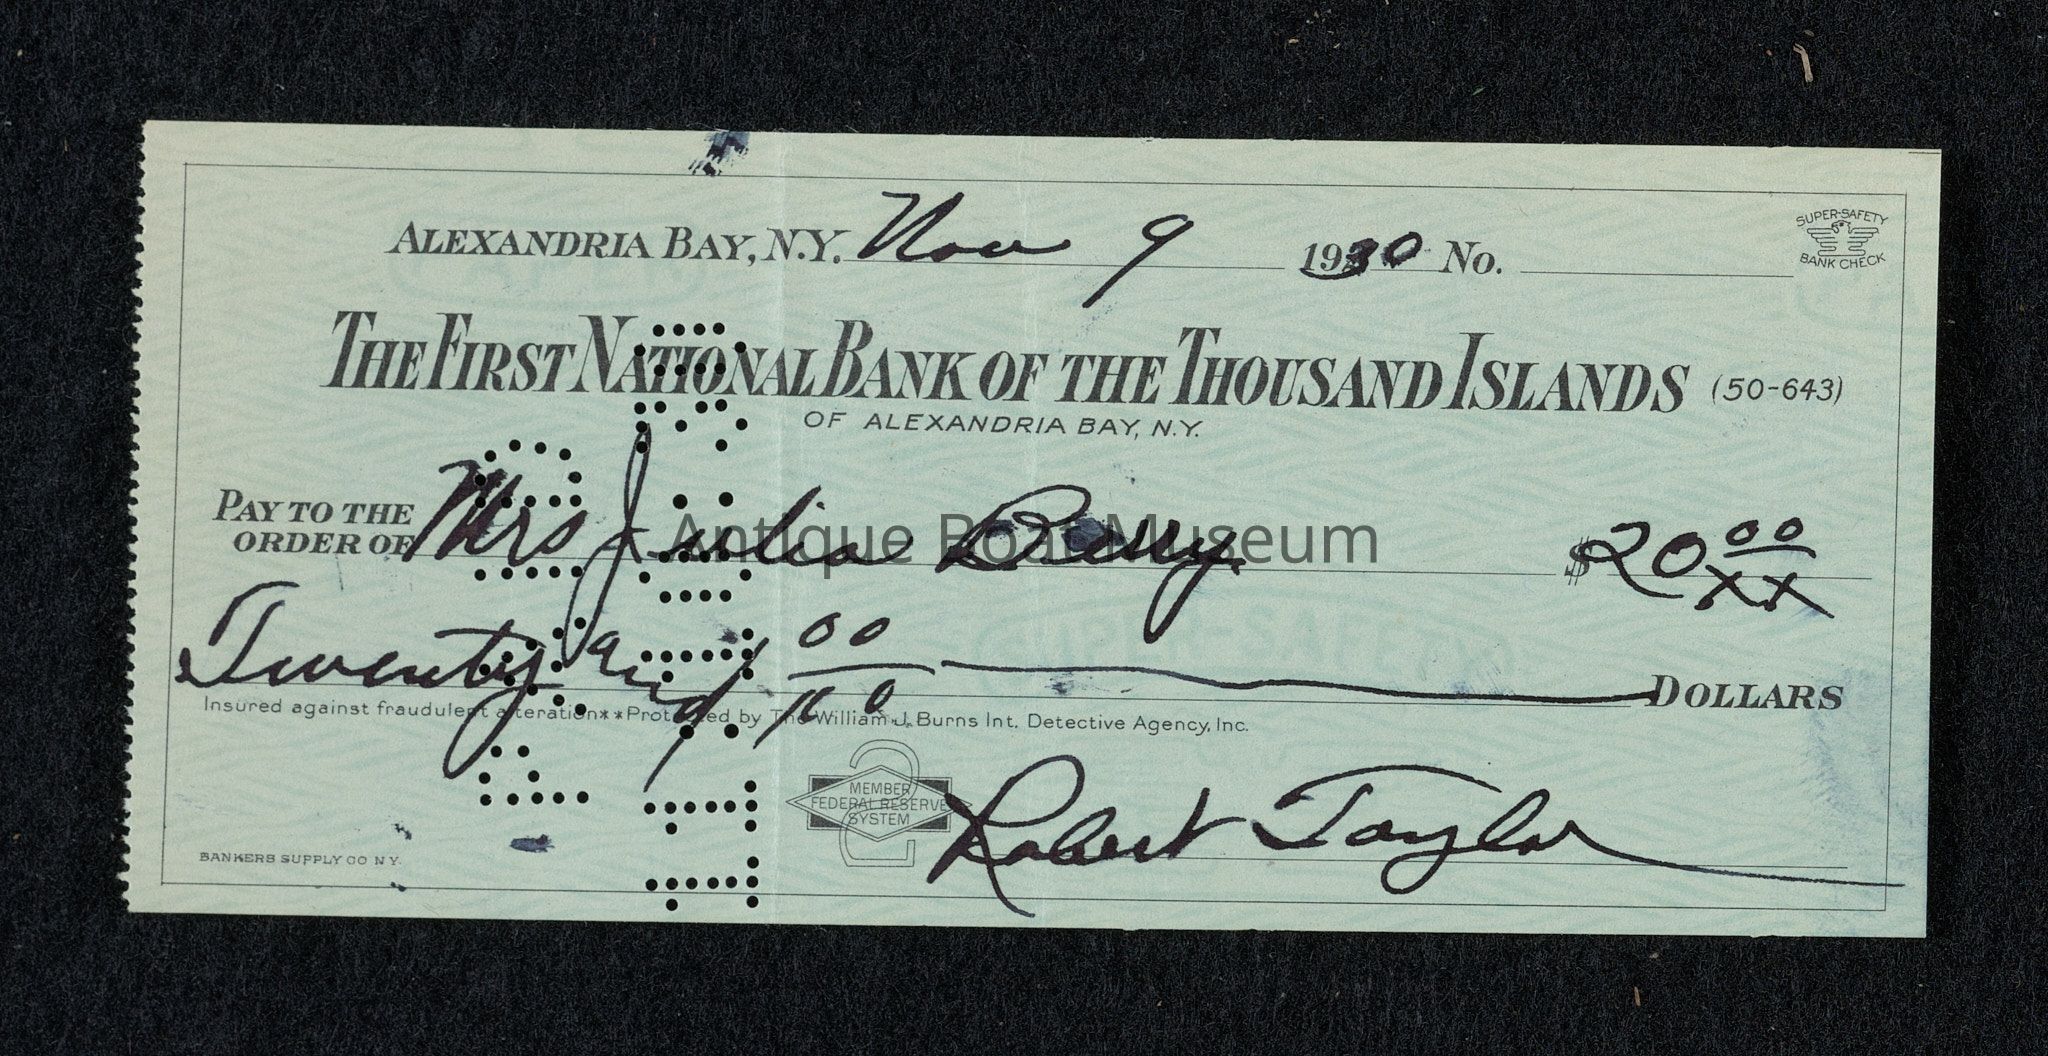 ALEXANDRIA BAY, N.Y. Nov 9 1930 No.
SUPER-SAFETY
BANK CHECK
THE FIRST NATIONAL BANK OF THE THOUSAND ISLANDS (50-643)
OF ALEXANDRIA BAY, N.Y.
PAY TO THE
ORDER OF Mrs Julia Berry $20 00/XX
Antique Boat Museum
Twenty and 00/100 DOLLARS
Insured against fraudulent alteration**Protected by The William J. Burns Int. Detective Agency, Inc.
MEMBER
FEDERAL RESERVE
SYSTEM
Robert Taylor
BANKERS SUPPLY CO N.Y.